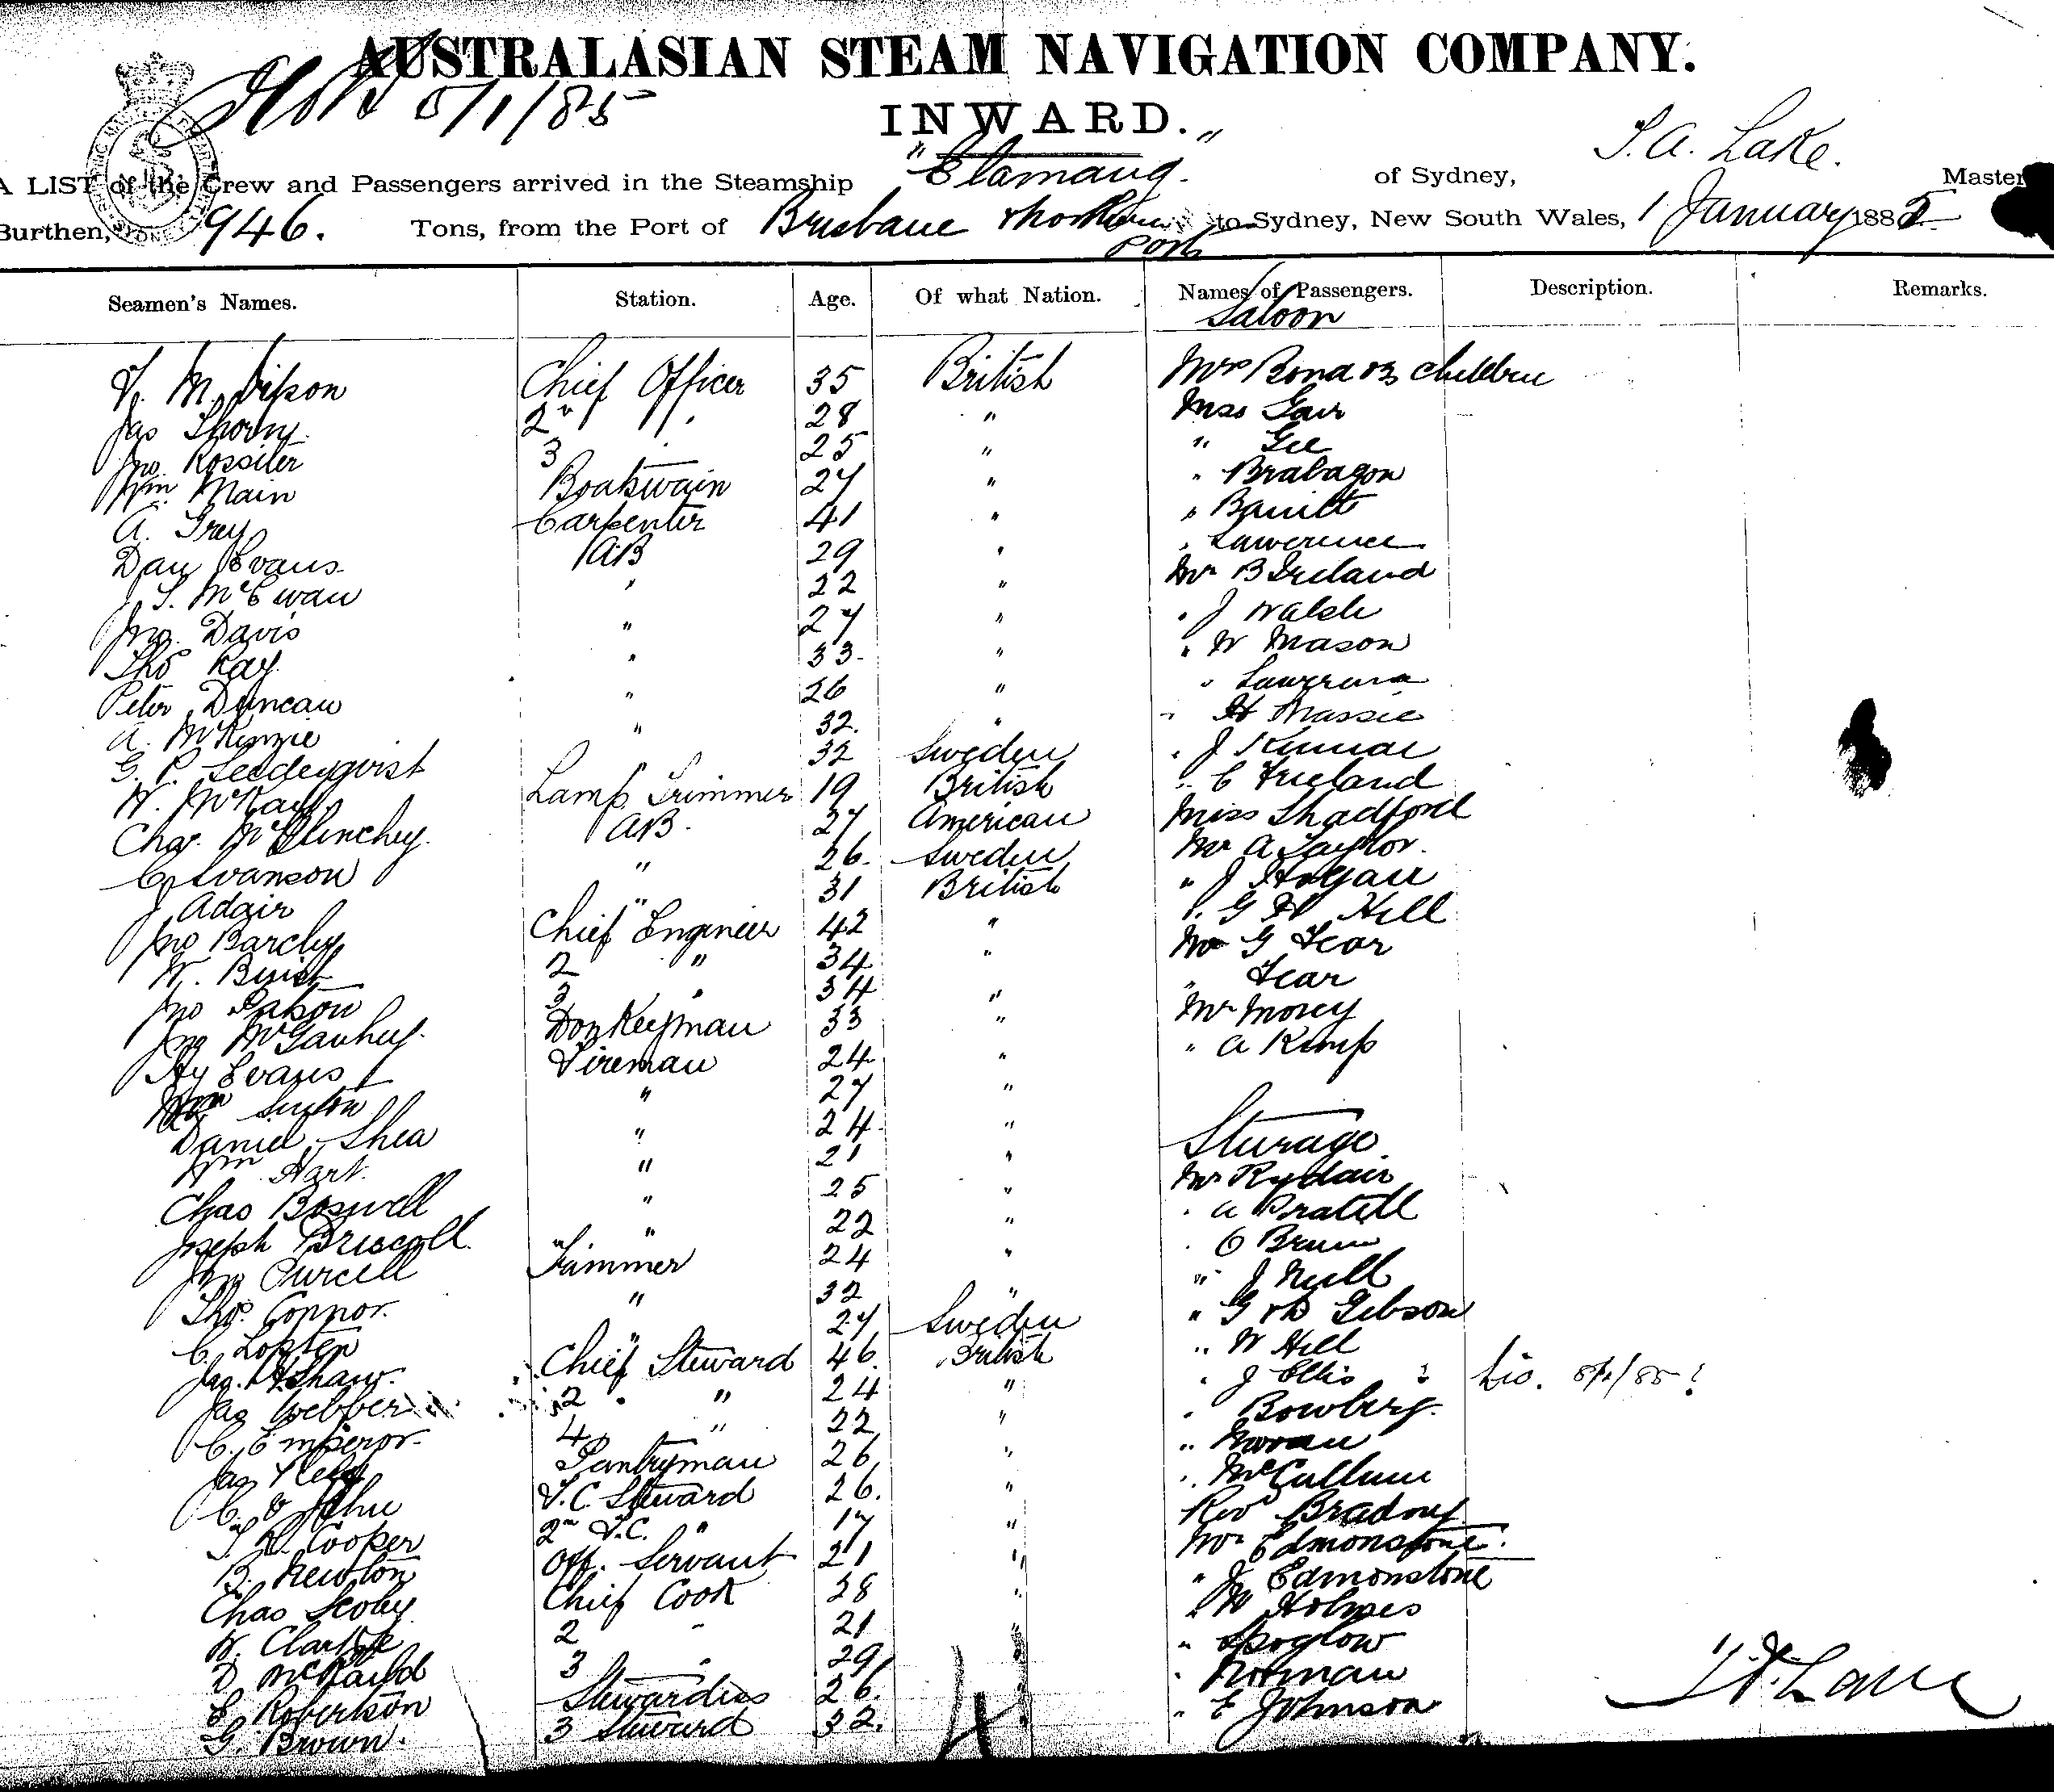 AUSTRALASIAN STEAM NAVIGATION COMPANY.
5/1/85
INWARD.
A LIST of the Crew and Passengers arrived in the Steamship "Elamang" of Sydney, T.A. Lake. Master
Burthen, 946. Tons, from the Port of Brisbane to Sydney, New South Wales, 1 January 1885
Seamen's Names. Station. Age. Of what Nation. Names of Passengers. Description. Remarks.
Saloon
Chief Officer 35 British Mrs Bond & 3 children
Jas Thorny 2n " 28 " Miss Gair
Jno. Rossiter 3 " 25 " " Gee
Wm Main Boatswain 27 " " Brabazon
A. Grey Carpenter 41 " " Barritt
Dan Evans AB 29 " " Lawerence
J S. McEwan " 22 " Mr B Ireland
Jno. Davis " 27 " " J Walsh
Thos Kay " 33 " " W Mason
Peter Duncan " 26 " "
A. McKenzie " 32 " " H Massie
G. P. " 32 Sweden " J
W. McKay Lamp Trimmer 19 British " C Freeland
Chas. McGlinchey AB 27 American Miss Shadford
C Svanson " 26 Sweden Mr A Taylor
J Adair " 31 British " J Hogan
Jno Barclay Chief Engineer 42 " " G H Hill
W. Buist 2 " 34 " Mr G Fear
Jno Paton 3 " 34 " " Fear
Jno Donkeyman 33 " Mr Morey
Hy Evans Fireman 24 " " A Kemp
Wm " 27 "
Daniel Shea " 24 " Sturage
Wm Hart " 21 " Mr
Chas Boswell " 25 " " A
Joseph Driscoll " 22 " " C
Jno Purcell Trimmer 24 " " J
Thos. Connor " 32 " " G & B Gibson
C. " 27 Sweden " W Hill
Jas. Shaw Chief Steward 46 British " J Ellis
Jas Webber 2 " 24 " " Bowberg
C. Emperor 4 " 22 " "
Jas Kelly Pantryman 26 " " McCullum
C. F.C. Steward 26 " Revd
T. H. Cooper 2n F.C. " 17 " Mr Edmonstone
B. Newton Off. Servant 21 " " J Edmonstone
Chas Scoby Chief Cook 28 " " W Holmes
W. Clarke 2 " 21 " "
D. 3 " 29 " " Norman
E Robertson Stewardess 26 " " E Johnson
G. Brown 3 Steward 32